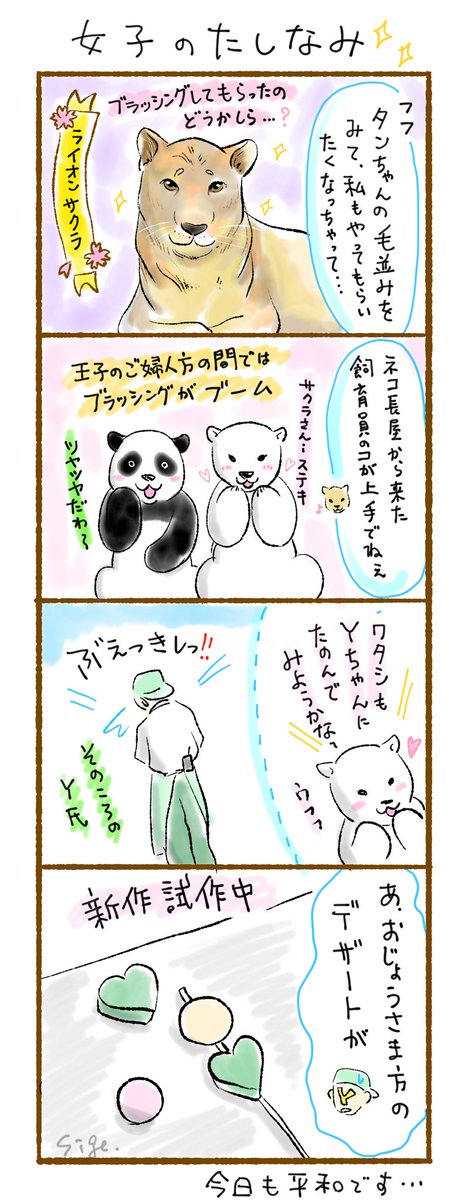 女子のたしなみ…
ブラッシングしてもらったの
どうかしら…?
ライオン サクラ
フフ
タンちゃんの毛並みを
みて、私もやってもらい
たくなっちゃって…
王子のご婦人方の間では
ブラッシングがブーム
ネコ長屋から来た
飼育員のコが上手でねぇ
サクラさん…ステキ
ツヤツヤだわ〜
ワタシも
Yちゃんに
たのんで
みようかな♪
ウフフ
ぶえっきしっ!!
そのころの
Y氏
あ、おじょうさま方の
デザートが
新作試作中
Y
Sige.
今日も平和です…